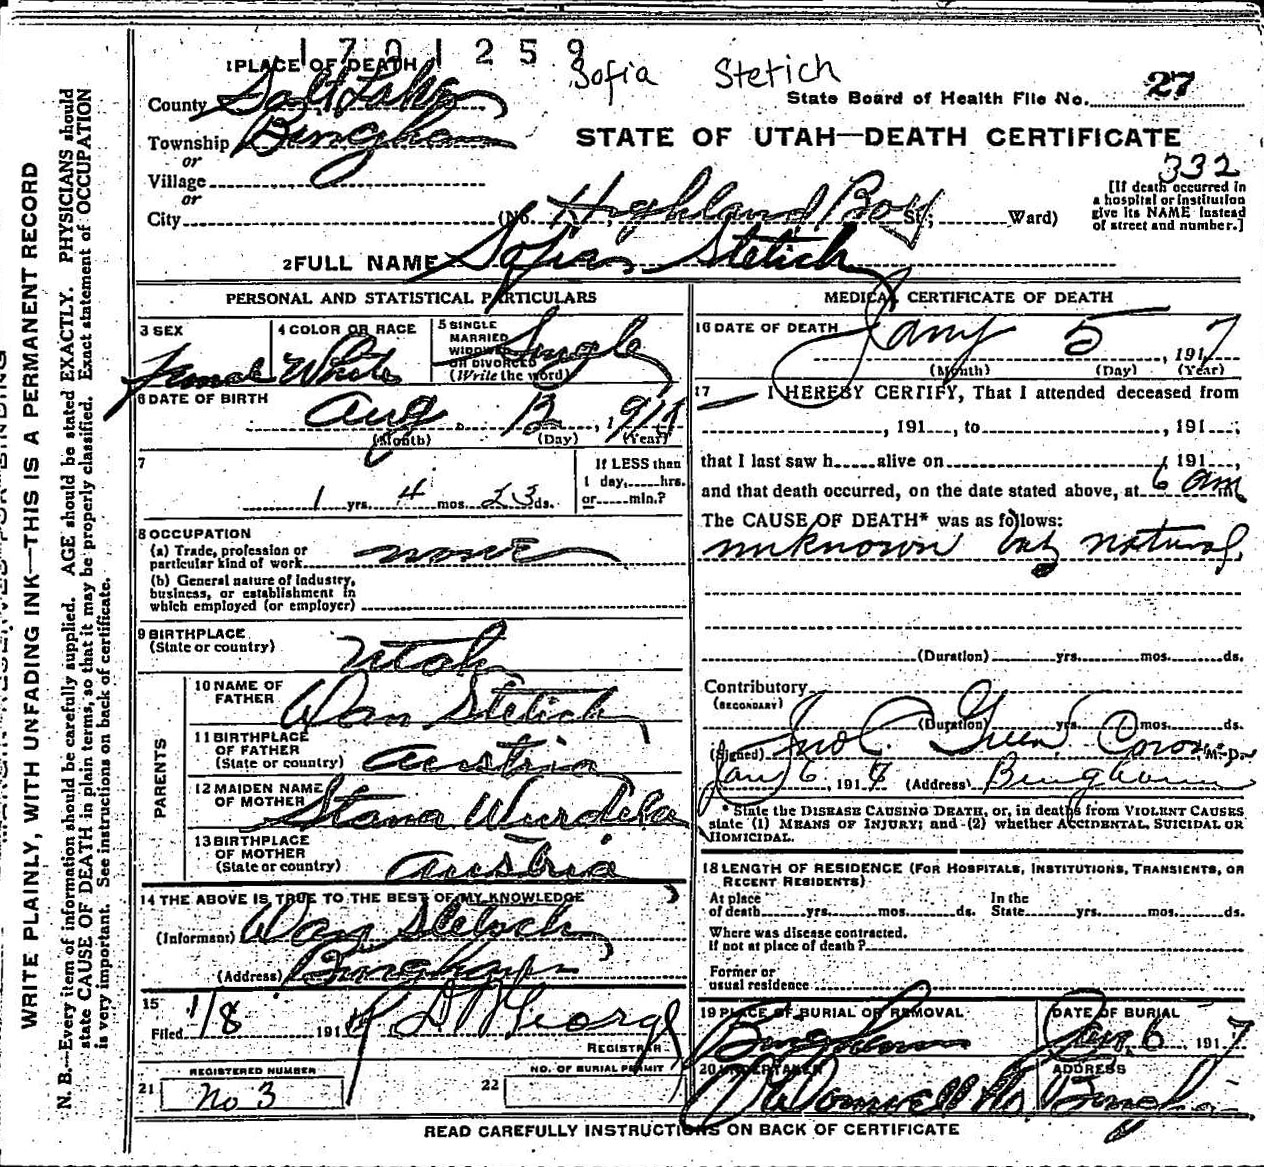 1701259
Sofia Stetich
1 PLACE OF DEATH
County Salt Lake
State Board of Health File No. 27
Township Bingham
or
Village
or
City
STATE OF UTAH—DEATH CERTIFICATE
332
(No. Highland Boy St.; Ward)
[If death occurred in
a hospital or institution
give its NAME instead
of street and number.]
2 FULL NAME Sofia Stetich
PERSONAL AND STATISTICAL PARTICULARS
3 SEX
Female
4 COLOR OR RACE
White
5 SINGLE
MARRIED
WIDOWED
OR DIVORCED
(Write the word)
Single
6 DATE OF BIRTH
Aug 12, 1915
(Month) (Day) (Year)
7
1 yrs. 4 mos. 23 ds.
If LESS than
1 day, hrs.
or min.?
8 OCCUPATION
(a) Trade, profession or
particular kind of work none
(b) General nature of industry,
business, or establishment in
which employed (or employer)
9 BIRTHPLACE
(State or country) Utah
PARENTS
10 NAME OF
FATHER Wan Stetich
11 BIRTHPLACE
OF FATHER
(State or country) Austria
12 MAIDEN NAME
OF MOTHER Stana Wurdela
13 BIRTHPLACE
OF MOTHER
(State or country) Austria
14 THE ABOVE IS TRUE TO THE BEST OF MY KNOWLEDGE
(Informant) Wan Stetich
(Address) Bingham
15
Filed 1/8 191
George
REGISTRAR
21 REGISTERED NUMBER
No 3
22 NO. OF BURIAL PERMIT
MEDICAL CERTIFICATE OF DEATH
16 DATE OF DEATH
Jany 5, 1917
(Month) (Day) (Year)
17 I HEREBY CERTIFY, That I attended deceased from
, 191 , to , 191 ;
that I last saw h alive on , 191 ,
and that death occurred, on the date stated above, at 6 am m
The CAUSE OF DEATH* was as follows:
unknown but natural
(Duration) yrs. mos. ds.
Contributory
(SECONDARY)
(Duration) yrs. mos. ds.
(Signed) Jno C. Green Coroner, M.D.
Jany 6, 1917 (Address) Bingham
* State the DISEASE CAUSING DEATH, or, in deaths from VIOLENT CAUSES
state (1) MEANS OF INJURY; and (2) whether ACCIDENTAL, SUICIDAL OR
HOMICIDAL.
18 LENGTH OF RESIDENCE (FOR HOSPITALS, INSTITUTIONS, TRANSIENTS, OR
RECENT RESIDENTS)
At place
of death yrs. mos. ds.
In the
State yrs. mos. ds.
Where was disease contracted.
If not at place of death?
Former or
usual residence
19 PLACE OF BURIAL OR REMOVAL
Bingham
DATE OF BURIAL
Jan. 6, 1917
20 UNDERTAKER
ADDRESS
Bingham
READ CAREFULLY INSTRUCTIONS ON BACK OF CERTIFICATE
WRITE PLAINLY, WITH UNFADING INK—THIS IS A PERMANENT RECORD
N. B.—Every item of information should be carefully supplied. AGE should be stated EXACTLY. PHYSICIANS should
state CAUSE OF DEATH in plain terms, so that it may be properly classified. Exact statement of OCCUPATION
is very important. See instructions on back of certificate.